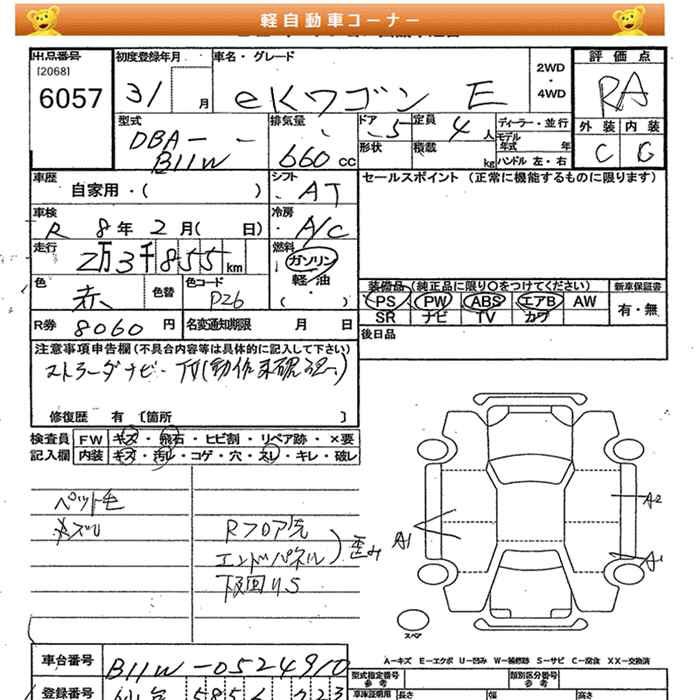 軽自動車コーナー
出品番号
[2068]
6057
初度登録年月
31
月
車名・グレード
eKワゴン E
2WD
・
4WD
評価点
RA
外装 内装
C C
型式
DBA-
B11W
排気量
660 cc
ドア
5
形状
定員
4 人
積載
kg
ディーラー・並行
モデル
年式 年
ハンドル 左・右
車歴
自家用・( )
シフト
AT
セールスポイント (正常に機能するものに限ります)
車検
R 8年 2月( 日)
冷房
A/C
走行
2万3千855km
燃料
ガソリン
・
軽・油
・( )
色
赤
色替
色コード
P26
装備品(純正品に限り〇をつけてください)
PS PW ABS エアB AW
SR ナビ TV カワ
新車保証書
有・無
R券 8060 円
名変通知期限 月 日
後日品
注意事項申告欄(不具合内容等は具体的に記入して下さい)
ストラーダナビ・TV(動作未確認)
修復歴 有 〔箇所 〕
検査員
記入欄
FW キズ・飛石・ヒビ割・リペア跡・×要
内装 キズ・汚れ・コゲ・穴・スレ・キレ・破レ
ペット毛
Rフロア先
エンドパネル
歪み
下回りS
A1
A2
A1
スペア
A─キズ E─エクボ U─凹み W─補修跡 S─サビ C─腐食 XX─交換済
車台番号
B11W-0524910
登録番号
仙台 585
型式指定番号
参考
類別区分番号
参考
車庫証明用
長さ
幅
高さ